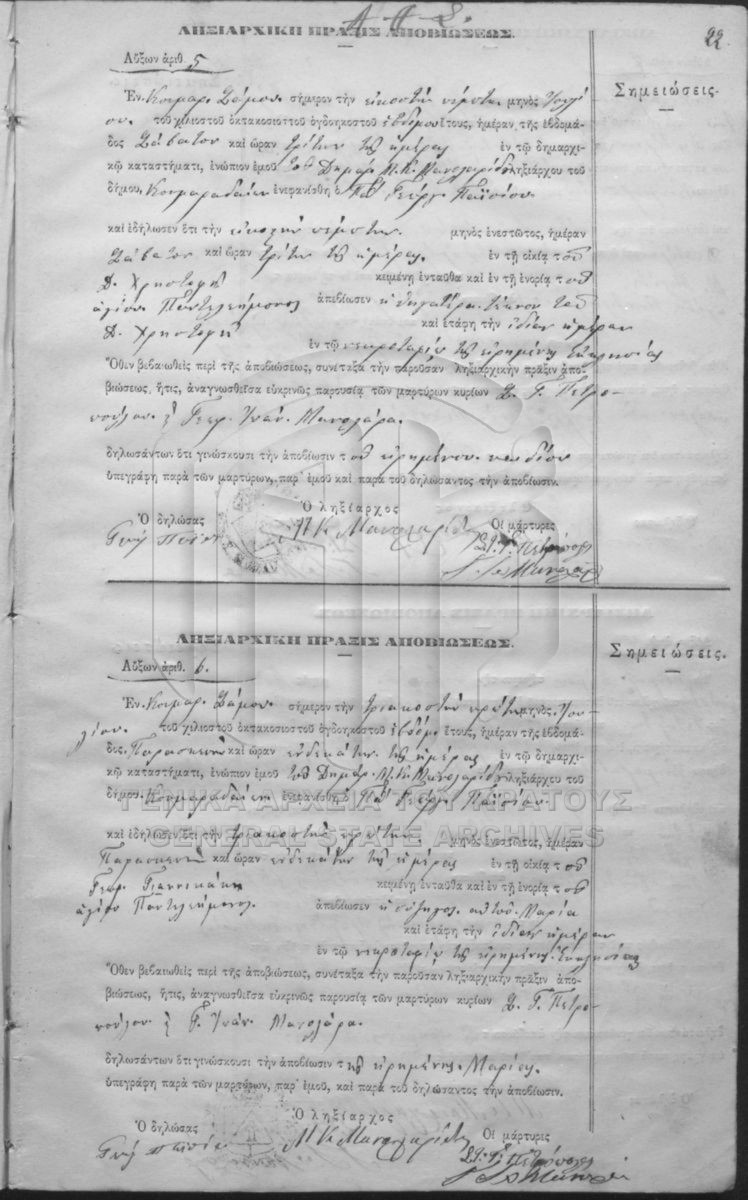 22
ΛΗΞΙΑΡΧΙΚΗ ΠΡΑΞΙΣ ΑΠΟΒΙΩΣΕΩΣ.
Αὔξων ἀριθ. 5
Σημειώσεις.
Ἐν Κουμαρ. Σάμου σήμερον τὴν εἰκοστὴν πέμπτην μηνὸς Ἰουλί
ου τοῦ χιλιοστοῦ ὀκτακοσιοστοῦ ὀγδοηκοστοῦ ἑβδόμου ἔτους, ἡμέραν τῆς ἑβδομά-
δος Σάββατον καὶ ὥραν τρίτην τῆς ἡμέρας ἐν τῷ δημαρχι-
κῷ καταστήματι, ἐνώπιον ἐμοῦ τοῦ Δημάρ. Μ. Κ. Μανωλαρίδου ληξιάρχου τοῦ
δήμου, Κουμαραδαίων ἐνεφανίσθη ὁ Πα Γεώργ. Παϊσίου
καὶ ἐδήλωσεν ὅτι τὴν εἰκοστὴν πέμπτην μηνὸς ἐνεστῶτος, ἡμέραν
Σάββατον καὶ ὥραν τρίτην τῆς ἡμέρας ἐν τῇ οἰκίᾳ τοῦ
Δ. Χρηστοφῆ κειμένῃ ἐνταῦθα καὶ ἐν τῇ ἐνορίᾳ τοῦ
ἁγίου Παντελεήμονος ἀπεβίωσεν ἡ θηγατέρα τέκνον τοῦ
Δ. Χρηστοφῆ καὶ ἐτάφη τὴν ἰδίαν ἡμέραν
ἐν τῷ νεκροταφίῳ τῆς εἰρημένης ἐκκλησίας
Ὅθεν βεβαιωθεὶς περὶ τῆς ἀποβιώσεως, συνέταξα τὴν παροῦσαν ληξιαρχικὴν πρᾶξιν ἀπο-
βιώσεως, ἥτις, ἀναγνωσθεῖσα εὐκρινῶς παρουσίᾳ τῶν μαρτύρων κυρίων Σ. Γ. Πετρο-
πούλου & Γεωρ. Ἰωάν. Μανολάρα.
δηλωσάντων ὅτι γινώσκουσι τὴν ἀποβίωσιν τοῦ εἰρημένου παιδίου
ὑπεγράφη παρὰ τῶν μαρτύρων, παρ' ἐμοῦ καὶ παρὰ τοῦ δηλώσαντος τὴν ἀποβίωσιν.
Ὁ ληξίαρχος
Ὁ δηλώσας
Οἱ μάρτυρες
Μ Κ Μανωλαρίδης
ΛΗΞΙΑΡΧΙΚΗ ΠΡΑΞΙΣ ΑΠΟΒΙΩΣΕΩΣ.
Αὔξων ἀριθ. 6.
Σημειώσεις.
Ἐν Κουμαρ. Σάμου σήμερον τὴν τριακοστὴν πρώτην μηνὸς Ἰου-
λίου τοῦ χιλιοστοῦ ὀκτακοσιοστοῦ ὀγδοηκοστοῦ ἑβδόμο ἔτους, ἡμέραν τῆς ἑβδομά-
δος Παρασκευὴν καὶ ὥραν ἑνδεκάτην τῆς ἡμέρας ἐν τῷ δημαρχι-
κῷ καταστήματι, ἐνώπιον ἐμοῦ τοῦ Δημάρ. Μ. Κ. Μανωλαρίδου ληξιάρχου τοῦ
δήμου Κουμαραδαίων ἐνεφανίσθη ὁ Πα Γεώργ. Παϊσίου
καὶ ἐδήλωσεν ὅτι τὴν τριακοστὴν πρώτην μηνὸς ἐνεστῶτος, ἡμέραν
Παρασκευὴν καὶ ὥραν ἑνδεκάτην τῆς ἡμέρας ἐν τῇ οἰκίᾳ τοῦ
Γεωρ. Γιαννικάκη κειμένῃ ἐνταῦθα καὶ ἐν τῇ ἐνορίᾳ τοῦ
ἁγίου Παντελεήμονος. ἀπεβίωσεν ἡ σύζυγος αὐτοῦ Μαρία
καὶ ἐτάφη τὴν ἰδίαν ἡμέραν
ἐν τῷ νεκροταφίῳ τῆς εἰρημένης ἐκκλησίας
Ὅθεν βεβαιωθεὶς περὶ τῆς ἀποβιώσεως, συνέταξα τὴν παροῦσαν ληξιαρχικὴν πρᾶξιν ἀπο-
βιώσεως, ἥτις, ἀναγνωσθεῖσα εὐκρινῶς παρουσίᾳ τῶν μαρτύρων κυρίων Σ. Γ. Πετρο-
πούλου & Γ. Ἰωάν. Μανολάρα.
δηλωσάντων ὅτι γινώσκουσι τὴν ἀποβίωσιν τῆς εἰρημένης Μαρίας.
ὑπεγράφη παρὰ τῶν μαρτύρων, παρ' ἐμοῦ, καὶ παρὰ τοῦ δηλώσαντος τὴν ἀποβίωσιν.
Ὁ ληξίαρχος
Ὁ δηλώσας
Οἱ μάρτυρες
Μ Κ Μανωλαρίδης
ΓΕΝΙΚΑ ΑΡΧΕΙΑ ΤΟΥ ΚΡΑΤΟΥΣ
GENERAL STATE ARCHIVES